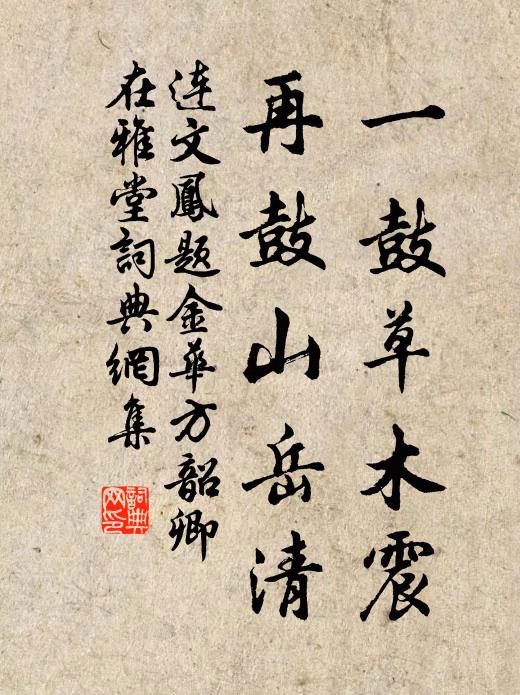 一鼓草木震
再鼓山岳清
連文鳳題金華方韶卿
在雅堂詞典網集
詞典網印